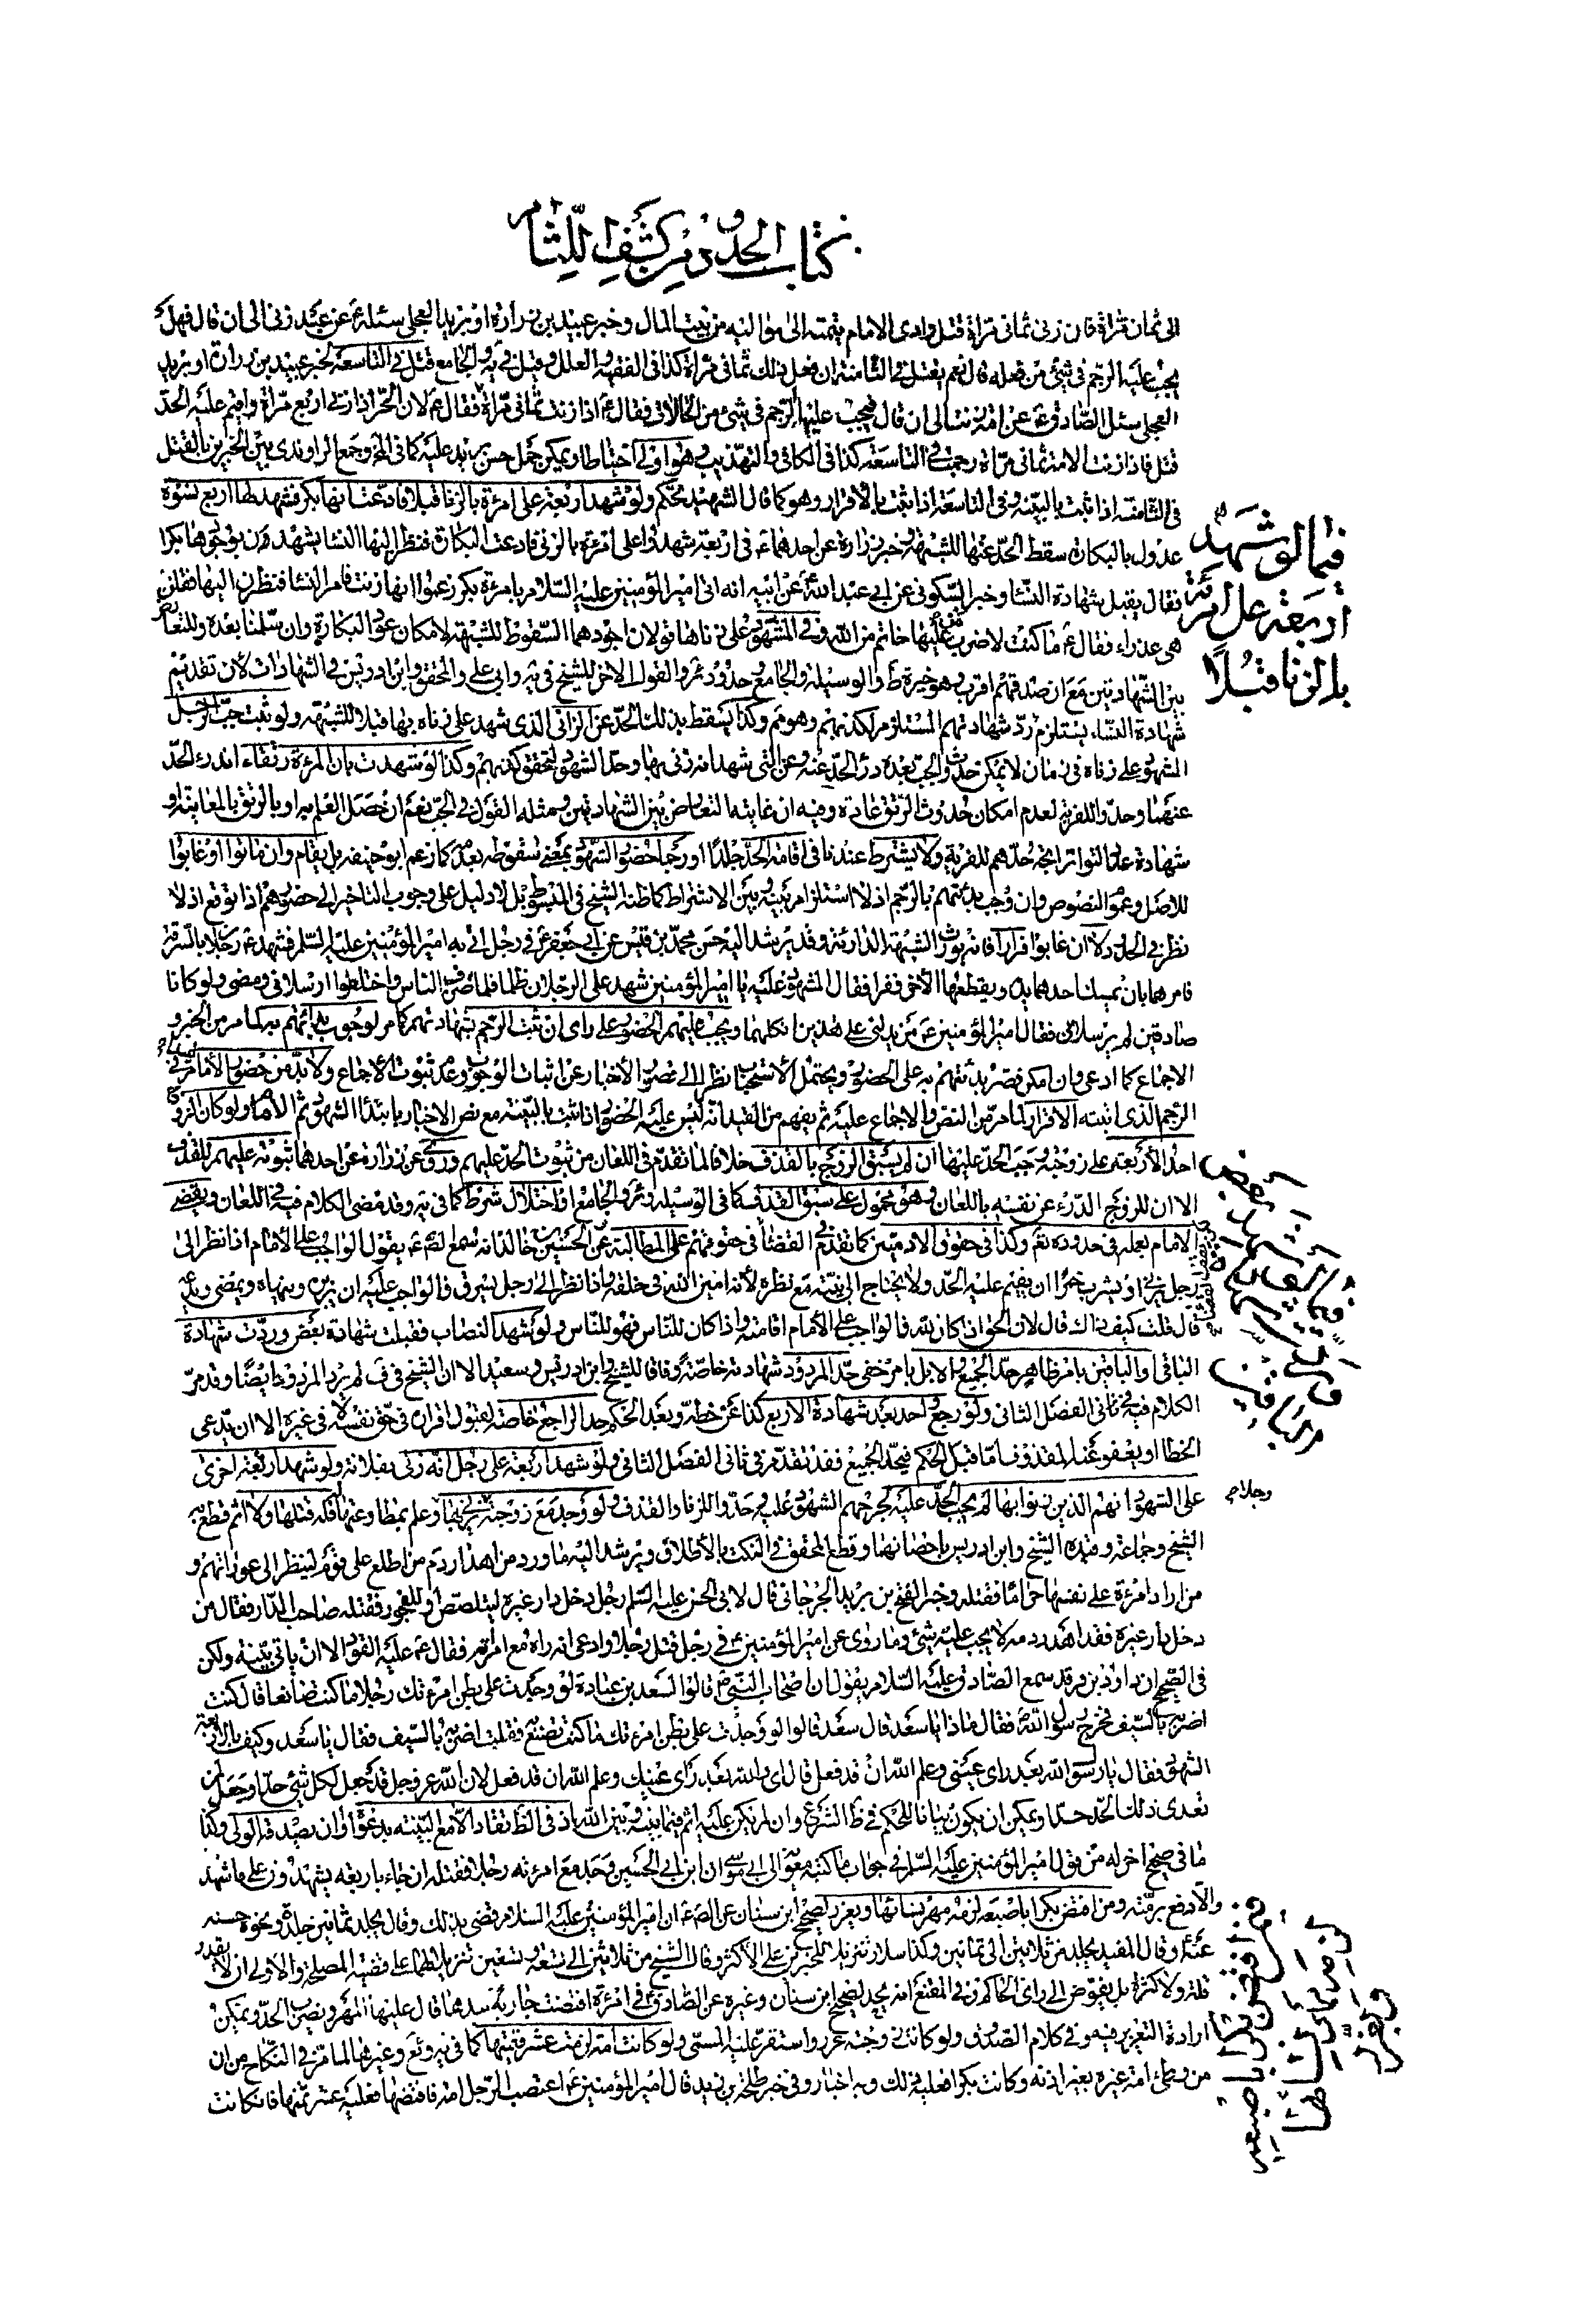 كتاب الحدود من كشف اللثام
الى ثمان مرّاة فان زنى ثمانى مرّاة قتل وادى الامام قيمته الى مواليه من بيت المال وخبر عبيد بن زرارة او بريد العجلى سئله عن عبد زنى الى ان قال فهل
يجب عليه الرّجم فى شئ من فعله قال نعم يقتل فى الثامنة ان فعل ذلك ثمانى مرّاة كذا فى الفقيه والعلل وقيل فى يه والجامع قتل فى التاسعة لخبر عبيد بن زرارة او بريد
العجلى سئل الصّادق ع عن امة زنت الى ان قال فيجب عليها الرّجم فى شئ من الحالات فقال ع اذا زنت ثمانى مرّاة فقال ع لان الحرّ اذا زنى اربع مرّاة واقيم عليه الحدّ
قتل فاذا زنت الامة ثمانى مرّاة رجمت فى التاسعة كذا فى الكافى والتهذيب وهو اولى احتياطا ويمكن حمل حسن بريد عليه كما فى المخ وجمع الراوندى بين الخبرين بالقتل
فى الثامنة اذا ثبت بالبيّنة وفى التاسعة اذا ثبت بالاقرار وهو كما قال الشهيد تحكّم ولو شهد اربعة على امرئة بالزنا قبلا فادّعت انها بكر فشهد لها اربع نسوة
عدول بالبكارة سقط الحدّ عنها للشبهة وخبر زرارة عن احدهما ع فى اربعة شهدوا على امرئة بالزنى فادعت البكارة فنظر اليها النسا فشهدن بوجودها بكرا
فقال يقبل شهادة النسا وخبر السّكونى عن ابى عبد الله ع عن ابيه انه اتى امير المؤمنين عليه السّلام بامرئة بكر زعموا انها زنت فامر النسا فنظرن اليها فقلن
هى عذراء فقال ع ما كنت لاضرب من عليها خاتم من الله وفى المشهود على زناها قولان اجودهما السّقوط للشبهة لامكان عود البكارة وان سلّمنا بعده وللتعارض
بين الشّهادتين مع ان صدقهم اقرب وهو خيرة ط والوسيلة والجامع وحدود ئر والقول الاخر للشيخ فى يه وابى على والمحقق وابن ادريس فى الشهادات لان تقديم
شهادة النسّاء يستلزم ردّ شهادتهم المستلزم لكذبهم وهو مم وكذا يسقط بذلك الحدّ عن الزانى الذى شهد على زناه بها قبلا للشبهة ولو ثبت جبّ الرّجل
المشهود على زناه فى زمان لا يمكن حدوث الجبّ بعده درئ الحدّ عنه وعن التى شهد انه زنى بها وحدّ الشهود لتحقق كذبهم وكذا لو شهدت بان المرئة رتقاء اندرئ الحدّ
عنهما وحدّوا للفرية لعدم امكان حدوث الرّتق عادة وفيه ان غايته التعارض بين الشهادتين ومثله القول فى الجبّ نعم ان حصل العلم به او بالرتق بالمعاينة او
شهادة عدد التواتر اتجه حدّهم للفرية ولا يشترط عندنا فى اقامة الحدّ جلدًا او رجما حضور الشّهود بمعنى سقوطه بعدمه كما زعم ابو حنيفه بل يقام وان ماتوا او غابوا
للاصل وعموم النّصوص وان وجب بدئتهم بالرّجم اذ لا استلزام بينه وبين الاشتراط كما ظنه الشيخ فى المبسوط بل لا دليل على وجوب التاخير الى حضورهم اذا توقع اذ لا
نظر فى الحدود لا ان غابوا فرارا فانه يورث الشبهة الدّارئة وقد يرشد اليه حسن محمّد بن قيس عن ابى جعفر ع فى رجل اتى به امير المؤمنين عليه السّلم فشهد عليه رجلان بالسّرقة
فامرهما بان يمسك احدهما يده ويقطعها الاخر ففرا فقال المشهود عليه يا امير المؤمنين شهد على الرّجلان ظلما فلما ضرب الناس واختلطوا ارسلانى ومضى ولو كانا
صادقين لم يرسلانى فقال امير المؤمنين ع من يدلنى على هذين انكلهما ويجب عليهم الحضور على راى ان ثبت الرّجم بشهادتهم كما مر لوجوب بدائتهم به كما مر من الخبر و
الاجماع كما ادعى وان امكن قصر بدئتهم به على الحضور ويحتمل الاستحباب نظرا الى قصور الاخبار عن اثبات الوجوب وعدم ثبوت الاجماع ولا بدّ من حضور الامام فى
الرّجم الذى اثبته الاقرار لما مرّ من النص والاجماع عليه ثم يفهم من القيد انه ليس عليه الحضور اذا ثبت بالبيّنة مع نص الاخبار بابتداء الشهود ثم الامام ولو كان الزوج
احد الاربعة على زوجته وجب الحدّ عليها ان لم يسبق الزّوج بالقذف خلافا لما تقدّم فى اللعان من ثبوت الحدّ عليهم وروى عن زرارة عن احدهما ثبوته عليهم للقذف
الا ان للزوج الدّرء عن نفسه باللعان وهو محمول على سبق القذف كما فى الوسيلة وئر والجامع او اختلال شرط كما فى يه وقد مضى الكلام فيه فى اللعان ويقضى
الامام بعلمه فى حدوده تعم وكذا فى حقوق الادميين كما تقدم فى القضاء فى حقوقهم على المطالبة عن الحسين بن خالد انه سمع الص ع يقول الواجب على الامام اذا نظر الى
رجل يزنى او يشرب خمرًا ان يقيم عليه الحدّ ولا يحتاج الى بيّنة مع نظره لانه امين الله فى خلقه واذا نظر الى رجل يسرق فالواجب عليه ان يزبره وينهاه ويمضى ويدعه
قال قلت كيف ذاك قال لان الحقّ اذا كان لله فالواجب على الامام اقامته واذا كان للناس فهو للناس ولو شهد النصاب فقبلت شهادة بعض وردّت شهادة
الباقى او الباقين بامر ظاهر حدّ الجميع والا بل بامر خفى حدّ المردود شهادته خاصّة وفاقا للشيخ وابن ادريس وسعيد الا ان الشيخ فى ف لم يرد المردود ايضًا وقد مرّ
الكلام فيه فى ثانى الفصل الثانى ولو رجع احد بعد شهادة الاربع كذا عن خطه وبعد الحكم حد الراجع خاصة لقبول اقراره فى حقّ نفسه لا فى غيره الا ان يدّعى
الخطا او يعفو عنه المقذوف امّا قبل الحكم فيحدّ الجميع فقد تقدّم فى ثانى الفصل الثانى ولو شهد اربعة على رجل انّه زنى بفلانة ولو شهد اربعة اخرى
على الشهود انهم الذين زنوا بها لم يجب الحدّ عليه لجرحهم الشهود عليه وحدّوا للزنا والقذف ولو وجد مع زوجته رجلا يزنى بها وعلم بمطاوعتها فله قتلها ولا اثم قطع به
الشيخ وجماعة وقيده الشيخ وابن ادريس باحصانهما وقطع المحقق فى النكت بالاطلاق ويرشد اليه ما ورد من اهدار دم من اطلع على قوم لينظر الى عوراتهم و
من راود امرئة على نفسها حراما فقتلته وخبر الفتح بن يزيد الجرجانى قال لابى الحسن عليه السّلم رجل دخل دار غيره ليتلصّص او للفجور فقتله صاحب الدّار فقال من
دخل دار غيره فقد اهدر دمه لا يجب عليه شئ وما روى عن امير المؤمنين ع فى رجل قتل رجلا وادعى انه راه مع امراته فقال ع عليه القود الا ان ياتى ببيّنة ولكن
فى الصّحيح ان داود بن فرقد سمع الصّادق عليه السّلام يقول ان اصحاب النّبى ص قالوا لسعد بن عبادة لو وجدت على بطن امرئتك رجلا ما كنت صانعا قال كنت
اضربه بالسّيف فخرج رسول الله ص فقال ماذا يا سعد قال سعد قالوا لو وجدت على بطن امرئتك ما كنت تصنع فقلت اضربه بالسّيف فقال يا سعد وكيف بالاربعة
الشهود فقال يا رسول الله بعد راى عينى وعلم الله ان قد فعل قال اى والله بعد راى عينك وعلم الله ان قد فعل لان الله عز وجل قد جعل لكل شئ حدّا وجعل لمن
تعدى ذلك الحّد حدّا ويمكن ان يكون بيانا للحكم فى ظ الشرع وان لم يكن عليه اثم فيما بينه وبين الله اذ فى الظ يقاد الا مع البيّنة بدعواه او ان يصدقه الولى وكذا
ما فى صحيح اخر له من قول امير المؤمنين عليه السّلم فى جواب ما كتبه معوية الى ابى موسى ان ابن ابى الحسين وجد مع امرئته رجلا فقتله ان جاء باربعة يشهدون على ما شهد
والّا دفع برمّته ومن افتض بكرا باصبعه لزمه مهر نسائها ويعزر لصحيح ابن سنان عن الص ع ان امير المؤمنين عليه السّلام قضى بذلك وقال يجلد ثمانين جلدة ونحوه حسنه
عنه ع وقال المفيد يجلد من ثلاثين الى ثمانين وكذا سلار تنزيلا للخبرين على الاكثر وقال الشيخ من ثلاثين الى تسعة وتسعين تنزيلا لهما على قضيّة المصلحة والاولى ان لا يقدر
قلة ولا كثرة بل يفوّض الى راى الحاكم وفى المقنع انه يحد لصحيح ابن سنان وغيره عن الصّادق ع فى امرئة افتضت جارية بيدها قال عليها المهر ويضرب الحدّ ويمكن
ارادة التعزير فيه وفى كلام الصّدوق ولو كانت زوجته عزر واستقر عليه المسمّى ولو كانت امة لزمه عشر قيمتها كما فى ير وئع وغيرهما لما مرّ فى النّكاح من ان
من وطئ امة غيره بغير اذنه وكانت بكرا فعليه ذلك وبه اخبار وفى خبر طلحة بن زيد قال امير المؤمنين ع اذا اغتصب الرّجل امة فافتضها فعليه عشر ثمنها فان كانت
فيما لو شهد
اربعة على امرئة
بالزنا قبلًا
فيما لو قبلت شهادة بعض
وردت شهادة
الباقين
رجلا
من افتض بكرا باصبعه
لزمه مهر نسائها
ويعزر